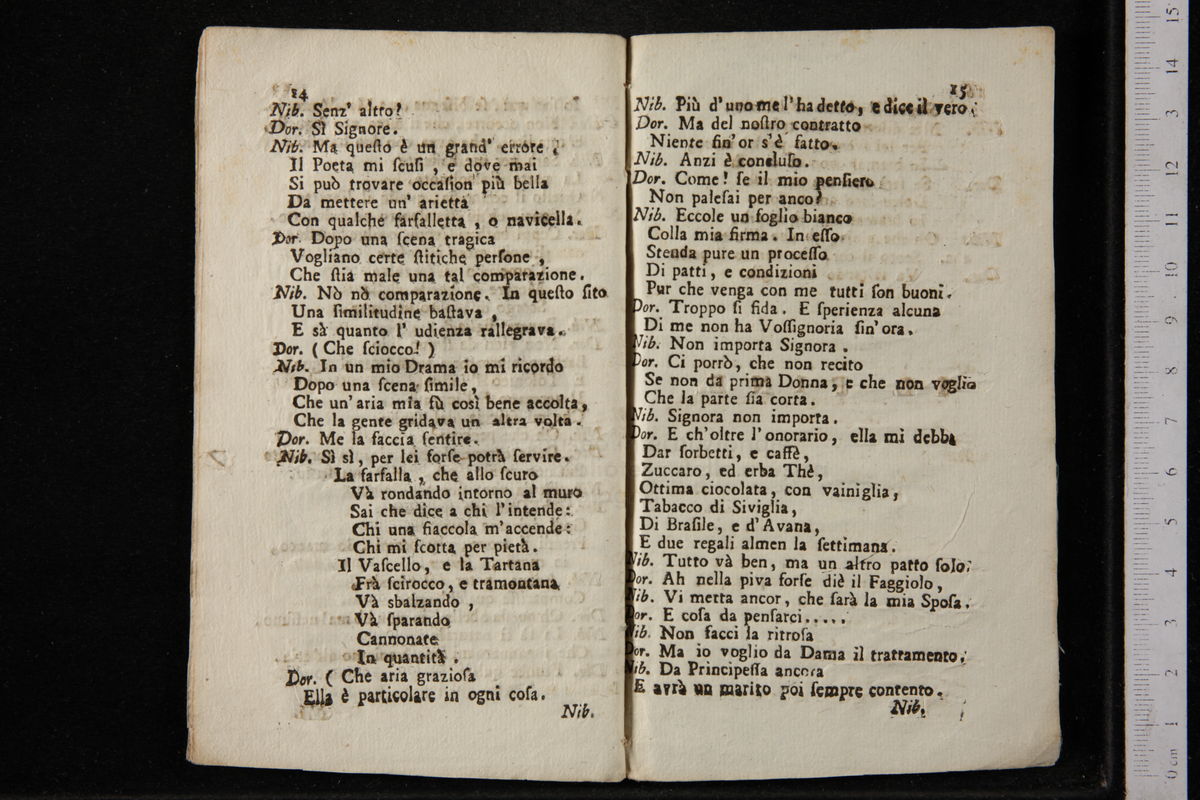 14
Nib. Senz' altro?
Dor. Sì Signore.
Nib. Ma queſto è un grand' errore.
Il Poeta mi ſcuſi, e dove mai
Si può trovare occaſion più bella
Da mettere un' arietta
Con qualche farfalletta, o navicella.
Dor. Dopo una ſcena tragica
Vogliano certe ſtitiche perſone,
Che ſtia male una tal comparazione.
Nib. Nò nò comparazione. In queſto ſito
Una ſimilitudine baſtava,
E sà quanto l' udienza rallegrava.
Dor. (Che ſciocco!)
Nib. In un mio Drama io mi ricordo
Dopo una ſcena ſimile,
Che un' aria mia fù così bene accolta,
Che la gente gridava un altra volta.
Dor. Me la faccia ſentire.
Nib. Sì sì, per lei forſe potrà ſervire.
La farfalla, che allo ſcuro
Và rondando intorno al muro
Sai che dice a chi l'intende:
Chi una fiaccola m'accende:
Chi mi ſcotta per pietà.
Il Vaſcello, e la Tartana
Frà ſcirocco, e tramontana
Và sbalzando,
Và ſparando
Cannonate
In quantità.
Dor. (Che aria grazioſa
Ella è particolare in ogni coſa.
Nib.
15
Nib. Più d'uno me l'ha detto, e dice il vero.
Dor. Ma del noſtro contratto
Niente fin'or s'è fatto.
Nib. Anzi è concluſo.
Dor. Come! ſe il mio penſiero
Non paleſai per anco?
Nib. Eccole un foglio bianco
Colla mia firma. In eſſo
Stenda pure un proceſſo
Di patti, e condizioni
Pur che venga con me tutti ſon buoni.
Dor. Troppo ſi fida. E ſperienza alcuna
Di me non ha Voſſignoria ſin'ora.
Nib. Non importa Signora.
Dor. Ci porrò, che non recito
Se non da prima Donna, e che non voglio
Che la parte ſia corta.
Nib. Signora non importa.
Dor. E ch'oltre l'onorario, ella mi debba
Dar ſorbetti, e caffè,
Zuccaro, ed erba Thè,
Ottima ciocolata, con vainiglia,
Tabacco di Siviglia,
Di Braſile, e d'Avana,
E due regali almen la ſettimana.
Nib. Tutto và ben, ma un altro patto ſolo.
Dor. Ah nella piva forſe diè il Faggiolo,
Nib. Vi metta ancor, che ſarà la mia Spoſa.
Dor. E coſa da penſarci.....
Nib. Non facci la ritroſa
Dor. Ma io voglio da Dama il trattamento.
Nib. Da Principeſſa ancora
E avrà un marito poi ſempre contento.
Nib.
0 cm 1 2 3 4 5 6 7 8 9 10 11 12 13 14 15